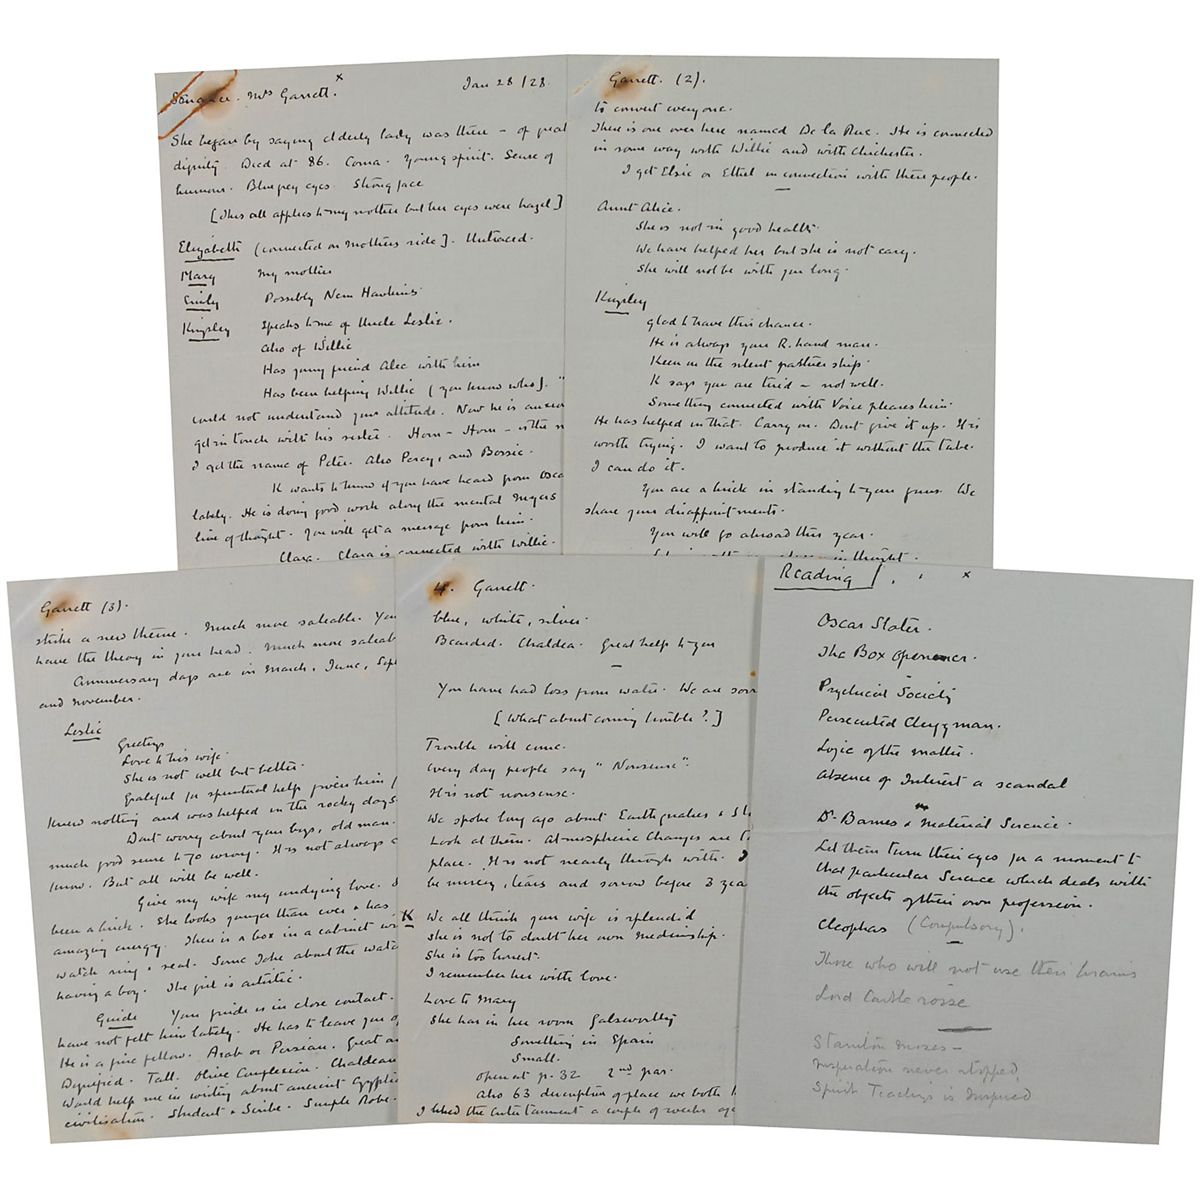 Séance. Mrs Garrett. x Jan 28/28.
She began by saying elderly lady was there – of great
dignity. Died at 86. Coma. Young spirit. Sense of
humour. Blue grey eyes. Strong face
[This all applies to my mother but her eyes were hazel]
Elizabeth (connected on mothers side]. Untraced.
Mary my mother
Emily Possibly Nem Hawkins
Kingsley Speaks to me of Uncle Leslie.
Also of Willie
Has young friend Alec with him
Has been helping Willie (you know who]. "
could not understand your attitude. Now he is anxiou
get in touch with his sister. Horn – Horn – is the n
I get the name of Peter. Also Percy, and Bossie.
K wants to know if you have heard from Osca
lately. He is doing good work along the mental Myers
line of thought. You will get a message from him.
Clara. Clara is connected with Willie.
Garrett. (2).
to convert everyone.
There is one over here named De la Rue. He is connected
in some way with Willie and with Chichester.
I get Elsie or Ethel in connection with these people.
Aunt Alice.
She is not in good health.
We have helped her but she is not easy.
She will not be with you long.
Kingsley
glad to have this chance.
He is always your R. hand man.
Keen on the silent partnership.
K says you are tired – not well.
Something connected with Voice pleases him.
He has helped in that. Carry on. Dont give it up. It is
worth trying. I want to produce it without the tube.
I can do it.
You are a brick in standing to your guns. We
share your disappointments.
You will go abroad this year.
in thought.
Garrett (3).
strike a new theme. Much more saleable. You
have the theory in your head. Much more saleab
Anniversary days are in March, June, Sept
and November.
Leslie
Greetings
Love to his wife
She is not well but better.
Grateful for spiritual help given him
Knew nothing and was helped in the rocky days.
Dont worry about your boys, old man.
much good sense to go wrong. It is not always
know. But all will be well.
Give my wife my undying love. S
been a brick. She looks younger than ever & has
amazing energy. There is a box in a cabinet wi
watch ring & seal. Some Joke about the watch
having a boy. The girl is artistic.
Guide You guide is in close contact.
have not felt him lately. He has to leave you
He is a fine fellow. Arab or Persian. Great
Dignified. Tall. Olive Complexion. Chaldean
Would help me in writing about ancient Egyptia
civilisation. Student & Scribe. Simple Robe.
4. Garrett.
blue, white, silver.
Bearded. Chaldea. Great help to you
You have had loss from water. We are sorr
[What about coming trouble?]
Trouble will come.
Every day people say "Nonsense".
It is not nonsense.
We spoke long ago about Earthquakes &
Look at them. Atmospheric Changes are t
place. It is not nearly through with.
be misery, tears and sorrow before 3 yea
K We all think your wife is splendid
She is not to doubt her own mediumship.
She is too honest.
I remember her with love.
Love to Mary
She has in her room Galsworthy
Something in Spain
Small.
open at p. 32 2nd par.
Also 63 description of place we both
I liked the entertainment a couple of weeks ago
Reading x
Oscar Slater.
The Box Opener.
Psychical Society
Persecuted Clergyman.
Logic of the matter.
Absence of Interest a scandal
Dr Barnes on Material Science.
Let them turn their eyes for a moment to
that particular Science which deals with
the objects of their own profession.
Cleophas (Compulsory).
Those who will not use their brains
Lord Castlerosse
Stainton Moses –
Inspiration never stopped.
Spirit Teachings is Inspired